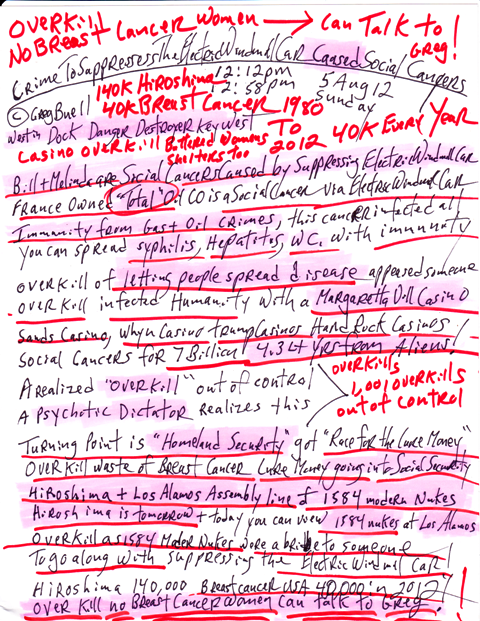 OVERKILL
NO BREAST CANCER WOMEN → CAN TALK TO GREG!
Crime To Suppresses The Electric Windmill Car Caused Social Cancers
140K HIROSHIMA 12:12pm 5 Aug 12
© Greg Buell 40K BREAST CANCER 12:58pm 1980 Sunday
Westin Dock Danger Destroyer Key West TO 40K EVERY YEAR
CASINO OVERKILL Battered Womens Shelters Too 2012
Bill + Melinda are Social Cancers Caused by Suppressing Electric Windmill Car
France Owned "Total" Oil CO is a Social Cancer via Electric Windmill Car
Immunity from Gas + Oil Crimes, this cancer infected all
You can spread syphilis, Hepatitis, WC. with immunity
OVERKILL of letting people spread disease appeased someone
OVERKILL infected Humanity with a Margaretta Dill Casino
Sands Casino, Whyn Casino trump Casinos Hard Rock Casinos
Social Cancers for 7 Billion! 4.3 Lt Yrs from Aliens!
A realized "OVERKILL" out of control
OVERKILLS
1,001 OVERKILLS
A Psychotic Dictator realizes this
out of control
Turning Point is "Homeland Security" got "Race for the Cure Money"
OVERKILL waste of Breast Cancer Cure Money going into Social Security
Hiroshima + Los Alamos Assembly line of 1584 modern Nukes
Hiroshima is tomorrow + today you can view 1584 nukes at Los Alamos
OVERKILL as 1584 Nukes were a bribe to someone
To go along with suppressing the Electric Windmill Car!
Hiroshima 140,000 Breast cancer USA 40,000 in 2012!
OVERKILL no Breast Cancer Women can talk to Greg!